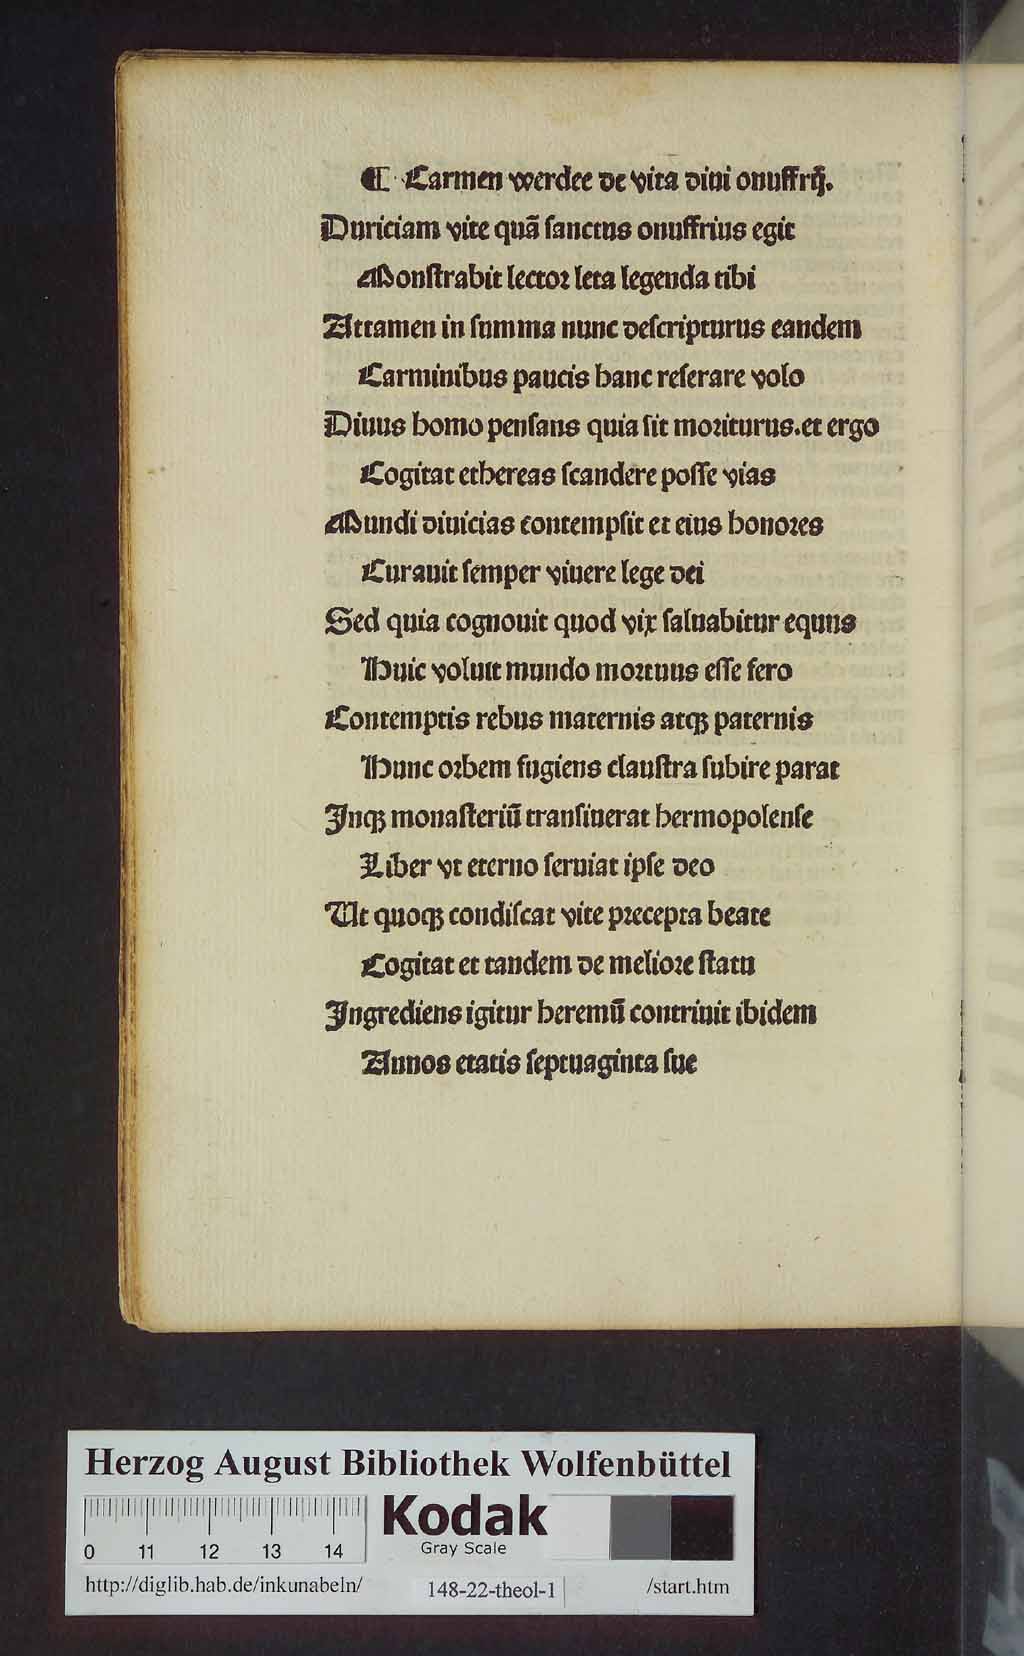 ¶ Carmen werdee de vita diui onuffrij.
Duriciam vite quã ſanctus onuffrius egit
Monſtrabit lectoꝛ leta legenda tibi
Attamen in ſumma nunc deſcripturus eandem
Carminibus paucis hanc reſerare volo
Diuus homo penſans quia ſit moꝛiturus.et ergo
Cogitat ethereas ſcandere poſſe vias
Mundi diuicias contempſit et eius honoꝛes
Curauit ſemper viuere lege dei
Sed quia cognouit quod vix ſaluabitur equus
Huic voluit mundo moꝛtuus eſſe fero
Contemptis rebus maternis atqꝫ paternis
Hunc oꝛbem fugiens clauſtra ſubire parat
Inqꝫ monaſteriũ tranſiuerat hermopolenſe
Liber vt eterno ſeruiat ipſe deo
Ut quoqꝫ condiſcat vite pꝛecepta beate
Cogitat et tandem de melioꝛe ſtatu
Ingrediens igitur heremũ contriuit ibidem
Annos etatis ſeptuaginta ſue
Herzog August Bibliothek Wolfenbüttel
Kodak
Gray Scale
0 11 12 13 14
http://diglib.hab.de/inkunabeln/ 148-22-theol-1 /start.htm